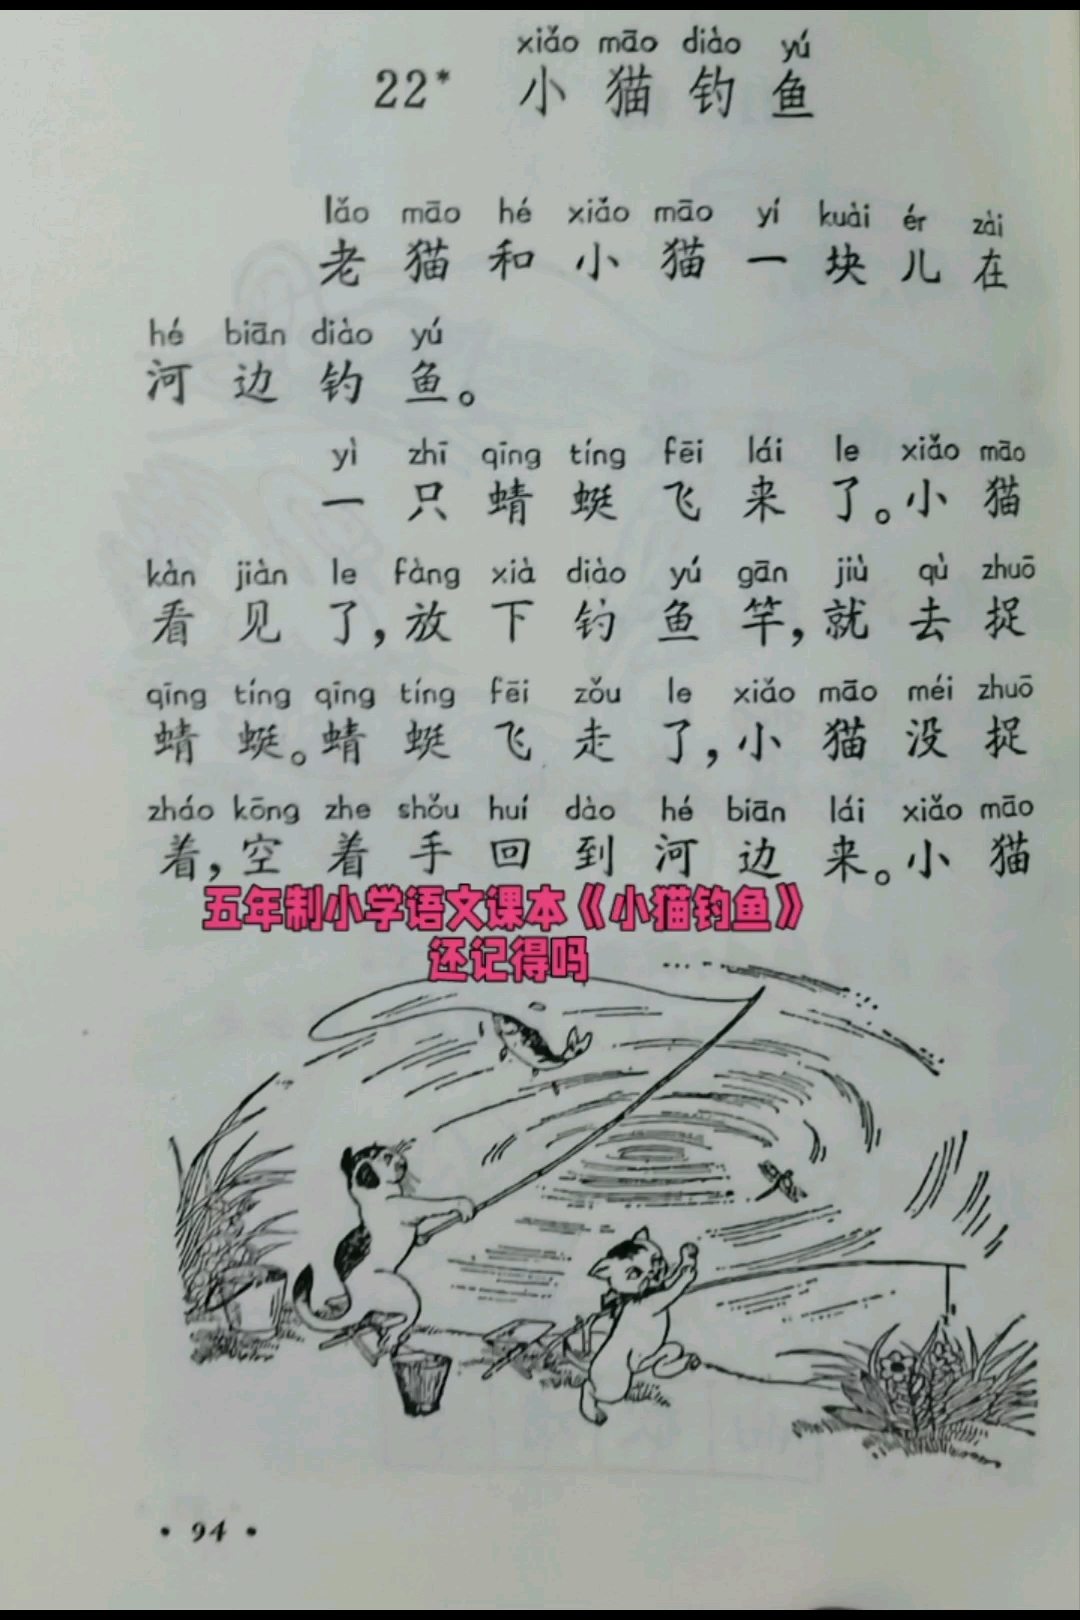 xiǎo māo diào yú
22* 小猫钓鱼
lǎo māo hé xiǎo māo yí kuài ér zài
老猫和小猫一块儿在
hé biān diào yú
河边钓鱼。
yì zhī qīng tíng fēi lái le xiǎo māo
一只蜻蜓飞来了。小猫
kàn jiàn le fàng xià diào yú gān jiù qù zhuō
看见了,放下钓鱼竿,就去捉
qīng tíng qīng tíng fēi zǒu le xiǎo māo méi zhuō
蜻蜓。蜻蜓飞走了,小猫没捉
zháo kōng zhe shǒu huí dào hé biān lái xiǎo māo
着,空着手回到河边来。小猫
五年制小学语文课本《小猫钓鱼》
还记得吗
• 94 •